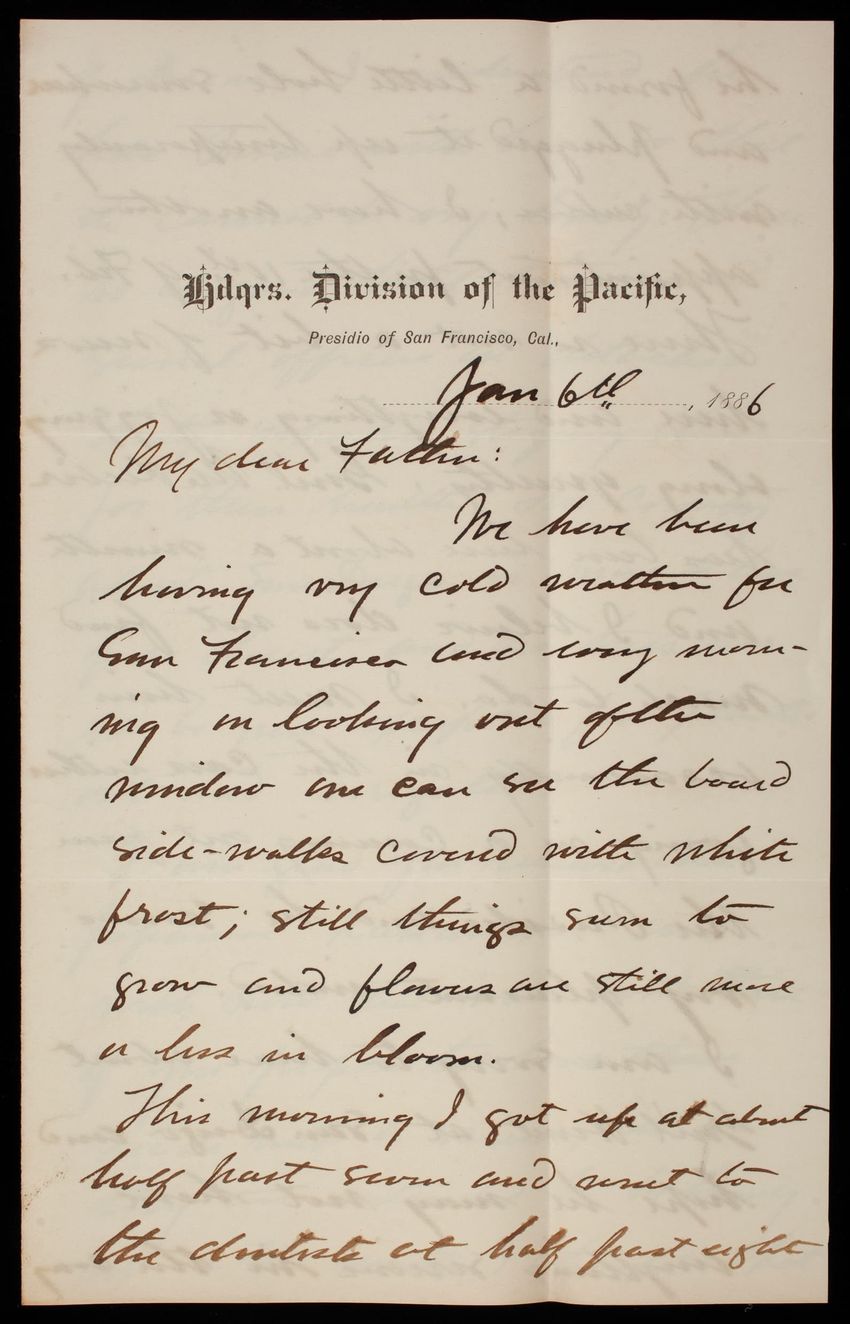 Hdqrs. Division of the Pacific,
Presidio of San Francisco, Cal.,
Jan 6th, 1886
My dear Father:
We have been
having very cold weather for
San Francisco and every morn-
ing on looking out of the
window one can see the board
side-walks covered with white
frost; still things seem to
grow and flowers are still more
or less in bloom.
This morning I got up at about
half past seven and went to
the dentists at half past eight